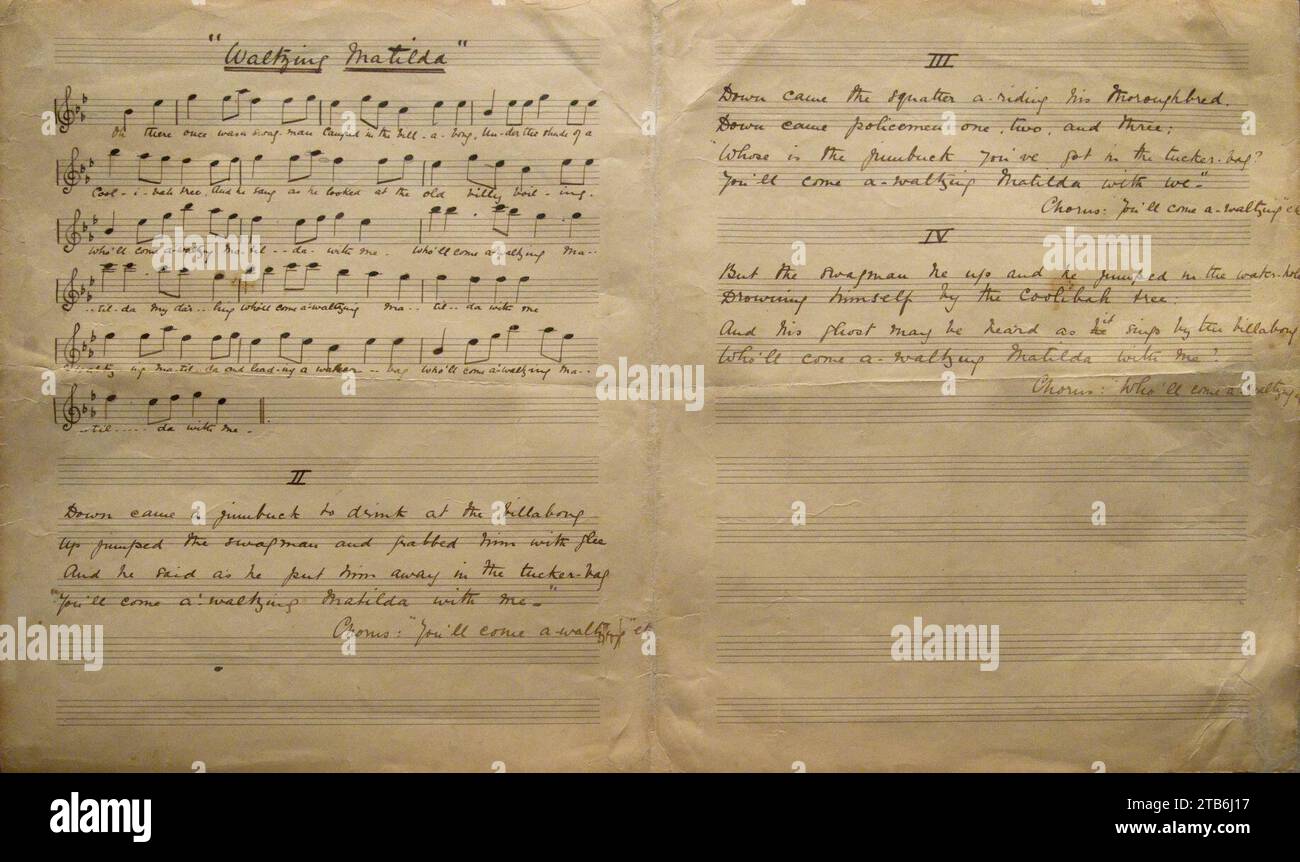 "Waltzing Matilda"
Oh there once was a swag-man Camped in the Bill-a-bong, Un-der the shade of a
Cool-i-bah tree, And he sang as he looked at the old billy boil-ing.
Who'll come a-waltzing Ma-til--da- with me. Who'll come a-waltzing Ma--
--til-da my dar--ling Who'll come a-waltzing ma--til--da with me
Waltz-ing Ma-til-da and lead-ing a water--bag Who'll come a-waltzing Ma--
--til-----da with me-
II
Down came a jumbuck to drink at the billabong
Up jumped the swagman and grabbed him with glee
And he said as he put him away in the tucker-bag
"You'll come a-waltzing Matilda with me-"
Chorus: "You'll come a-waltzing" et
III
Down came the squatter a-riding his thoroughbred.
Down came policemen one, two, and three;
"Whose is the jumbuck you've got in the tucker-bag?
You'll come a-waltzing Matilda with we-"
Chorus: "You'll come a-waltzing"
IV
But the swagman he up and he jumped in the water-hole
Drowning himself by the Coolibah tree:
And his ghost may be heard as it sings by the billabong
Who'll come a-waltzing Matilda with me?
Chorus: "Who'll come a-waltzing
alamy
alamy
alamy
alamy
alamy
alamy
Image ID: 2TB6J17
www.alamy.com